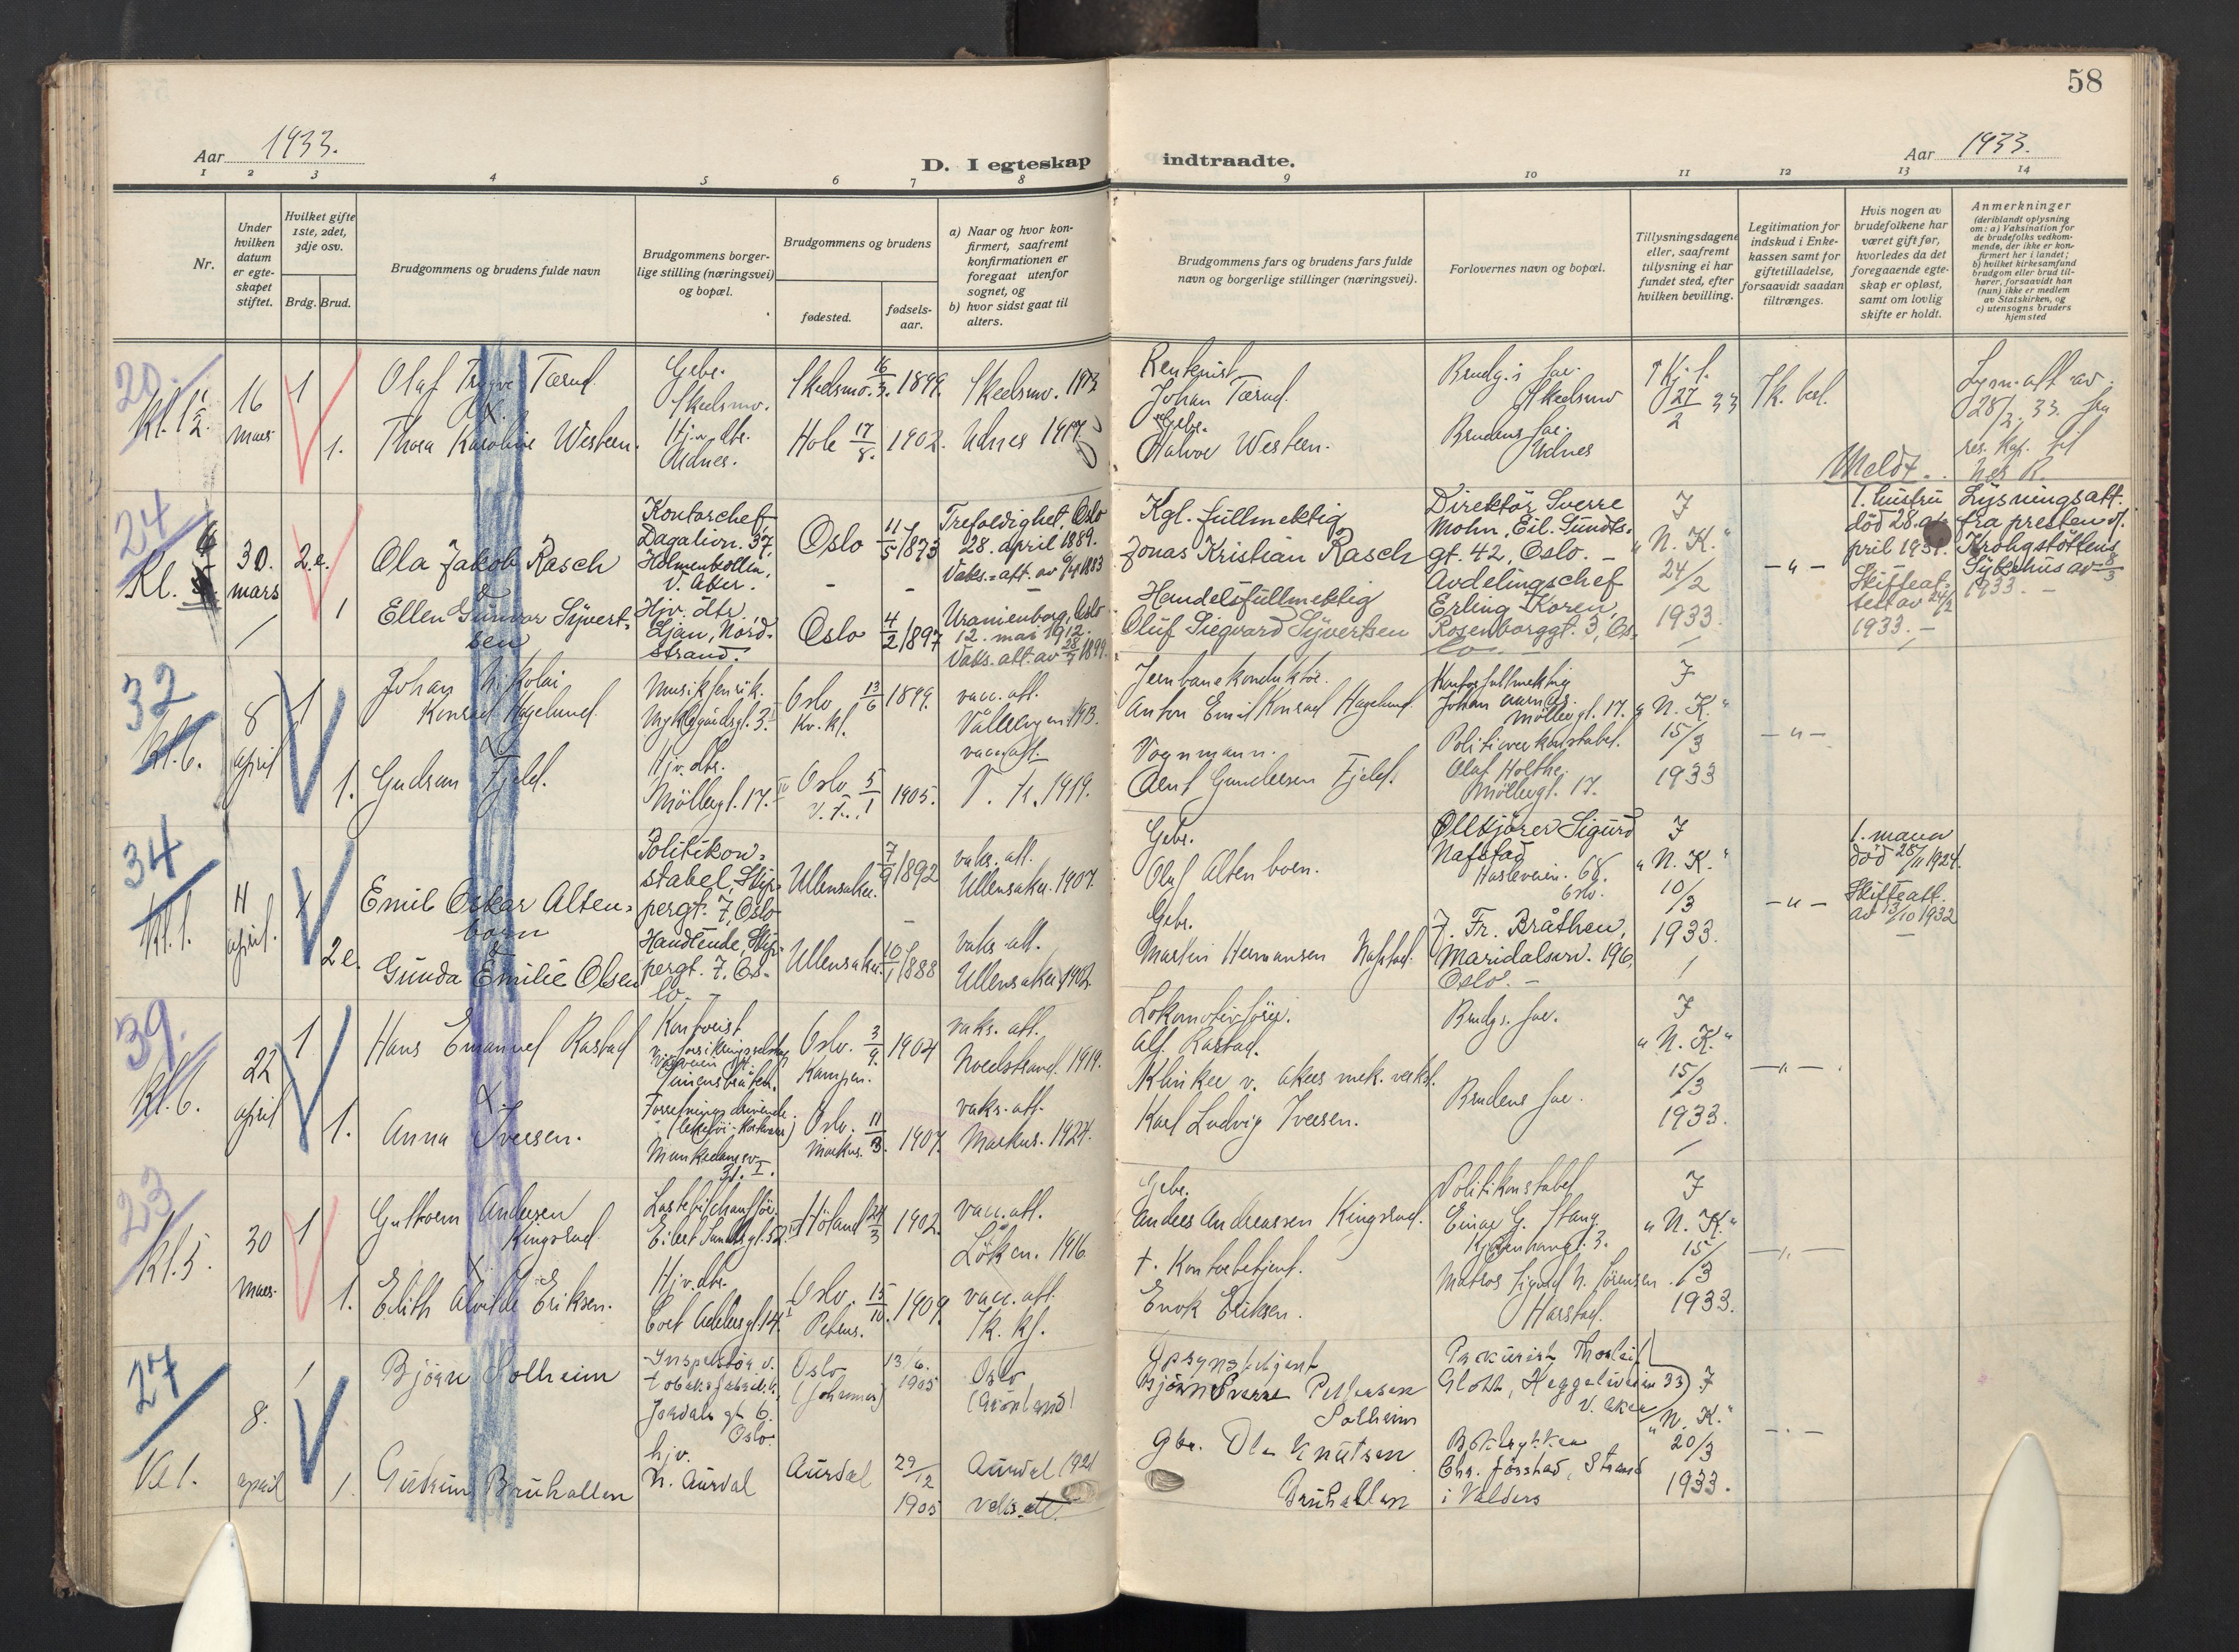 58
Aar 1933.
D. I egteskap indtraadte.
Aar 1933.
1 2 3 4 5 6 7 8 9 10 11 12 13 14
Nr.
Under hvilken datum er egteskapet stiftet.
Hvilket gifte 1ste, 2det, 3dje osv.
Brdg. Brud.
Brudgommens og brudens fulde navn
Brudgommens borgerlige stilling (næringsvei) og bopæl.
Brudgommens og brudens
fødested.
fødselsaar.
a) Naar og hvor konfirmert, saafremt konfirmationen er foregaat utenfor sognet, og
b) hvor sidst gaat til alters.
Brudgommens fars og brudens fars fulde navn og borgerlige stillinger (næringsvei).
Forlovernes navn og bopæl.
Tillysningsdagene eller, saafremt tillysning ei har fundet sted, efter hvilken bevilling.
Legitimation for indskud i Enkekassen samt for giftetilladelse, forsaavidt saadan tiltrænges.
Hvis nogen av brudefolkene har været gift før, hvorledes da det foregaaende egteskap er opløst, samt om lovlig skifte er holdt.
Anmerkninger
(deriblandt oplysning om: a) Vaksination for de brudefolks vedkommende, der ikke er konfirmert her i landet;
b) hvilket kirkesamfund brudgom eller brud tilhører, forsaavidt han (hun) ikke er medlem av Statskirken, og
c) utensogns bruders hjemsted
20.
Kl. 1 1/2.
16 mars
1
1.
Olaf Trygve Tærud.
Thora Karoline Western.
Gbr.
Skedsmo.
Hj.v. dtr.
Udnes.
Skedsmo. 16/3. 1899.
Hole 17/8. 1902.
Skedsmo. 1913
Udnes 1917.
Rentenist
Johan Tærud.
Gbr.
Halvor Western.
Brudg.s far.
Skedsmo
Brudens far.
Udnes
27/2 33
Lysn. att. av
28/2. 33. fra
res. kap. til
Nes R.
Meldt.
24
Kl.
30. mars
2.e.
1
Ola Jakob Rasch
&
Ellen Gunvor Syvertsen
Kontorchef
Dagalivn. 37,
Holmenkollen,
V. Aker.
Hjv. dtr.
Ljan, Nordstrand.
Oslo 11/5 1873
Oslo 4/2 1897
Trefoldighet, Oslo
28. april 1889.
Vaks.-att. av 1883
Uranienborg, Oslo
12. mai 1912.
Vaks. att. av 1899.
Kgl. fullmektig
Jonas Kristian Rasch
Handelsfullmektig
Oluf Siegvard Syvertsen
Direktør Sverre
Mohn, Eil. Sundts-
gt. 42, Oslo. -
Avdelingschef
Erling Koren,
Rosenborggt. 3, Os-
lo.
I
"N. K."
24/2
1933.
- " -
1. hustru
død 28. a-
pril 1931.
Skifteat-
test av 24/2
1933. -
Lysningsatt.
fra presten v.
Krohgstøttens
Sykehus av 8/3
1933. -
32
Kl. 6.
8 april
1
1.
Johan Nikolai
Konrad Hagelund
Gudrun Fjeld.
Musikfenrik.
Hjv. dtr.
Møllergt. 17. IV
Oslo 13/6 1899.
Oslo 5/1 1905.
vacc. att.
Vålerengen 1913.
vacc. att.
1919.
Jernbanekonduktør.
Anton Emil Konrad Hagelund
Vognmann.
Arnt Gundersen Fjeld.
Kontorfullmektig
Møllergt. 17.
Politioverkonstabel.
Olaf Holthe.
Møllergt. 17.
I
"N. K."
15/3
1933
- " -
34
Kl. 1.
11 april.
1
2 e.
Emil Oskar Alten-
born
&
Gunda Emilie Olsen
Politikon-
stabel, Skip-
pergt. 7, Oslo
Handlende, Skip-
pergt. 7. Os-
lo. -
Ullensaker. 7/9 1892
Ullensaker. 10/1 1888
vaks. att.
Ullensaker. 1907.
vaks. att.
Ullensaker 1902.
Gbr.
Oluf Altenborn.
Gbr.
Martin Hermansen Nafstad.
Ølkjører Sigurd
Nafstad
Hasleveien. 68.
Oslo.
J. Fr. Bråthen,
Maridalsvn. 196,
Oslo. -
I
"N. K."
10/3
1933.
- " -
1. mann
død 28/11 1924.
Skifteatt.
av 13/10 1932
39.
Kl. 6.
22 april
1
1.
Hans Emanuel Rastad
&
Anna Iversen.
Kontorist
Simensbråten.
Forretningsdrivende.
Oslo. 3/9. 1904
Kampen.
Oslo. 11/3. 1907.
Markus.
vaks. att.
Nordstrand. 1919.
vaks. att.
Markus. 1924.
Lokomotivfører.
Alf. Rastad.
Klinker v. Akers mek. verkst.
Karl Ludvig Iversen.
Brudgs. far.
Brudens far.
I
"N. K."
15/3
1933.
- " -
23
Kl. 5.
30 mars.
1
1.
Guttorm Andersen
Kingsrud
&
Edith Alvilde Eriksen.
Lastebilchauffør
Eilert Sundtsgt. 52
Hjv. dtr.
Høland 24/3 1902.
Oslo. 15/10. 1909.
Petrus.
vacc. att.
Løken. 1916
vacc. att.
Anders Andreassen Kingsrud.
† Kontorbetjent.
Enok Eriksen.
Politikonstabel
Einar G. Stang.
Matros Sigurd N. Sørensen.
Harstad.
I
"N. K."
15/3
1933.
- " -
27
Kl 1.
8. april
1
1.
Bjørn Solheim
Gudrun Bruhallen
Inspektør v.
tobaksfabrik.
Jordals gt 6.
Oslo.
hjv.
N. Aurdal
Oslo 13/6. 1905
Aurdal 29/12 1905
Oslo
(Grønland)
Aurdal 1921
Vaks. att.
Opsynsbetjent
Bjørn Sverre Pettersen
Solheim
Gbr. Ola Knutsen
Bruhallen
Prokurist Thorleif
Glott, Heggeliveien 33
V. Aker
Boktrykker
Chr. Jørstad, Strand
i Valdres
I
"N. K."
20/3
1933.
- " -